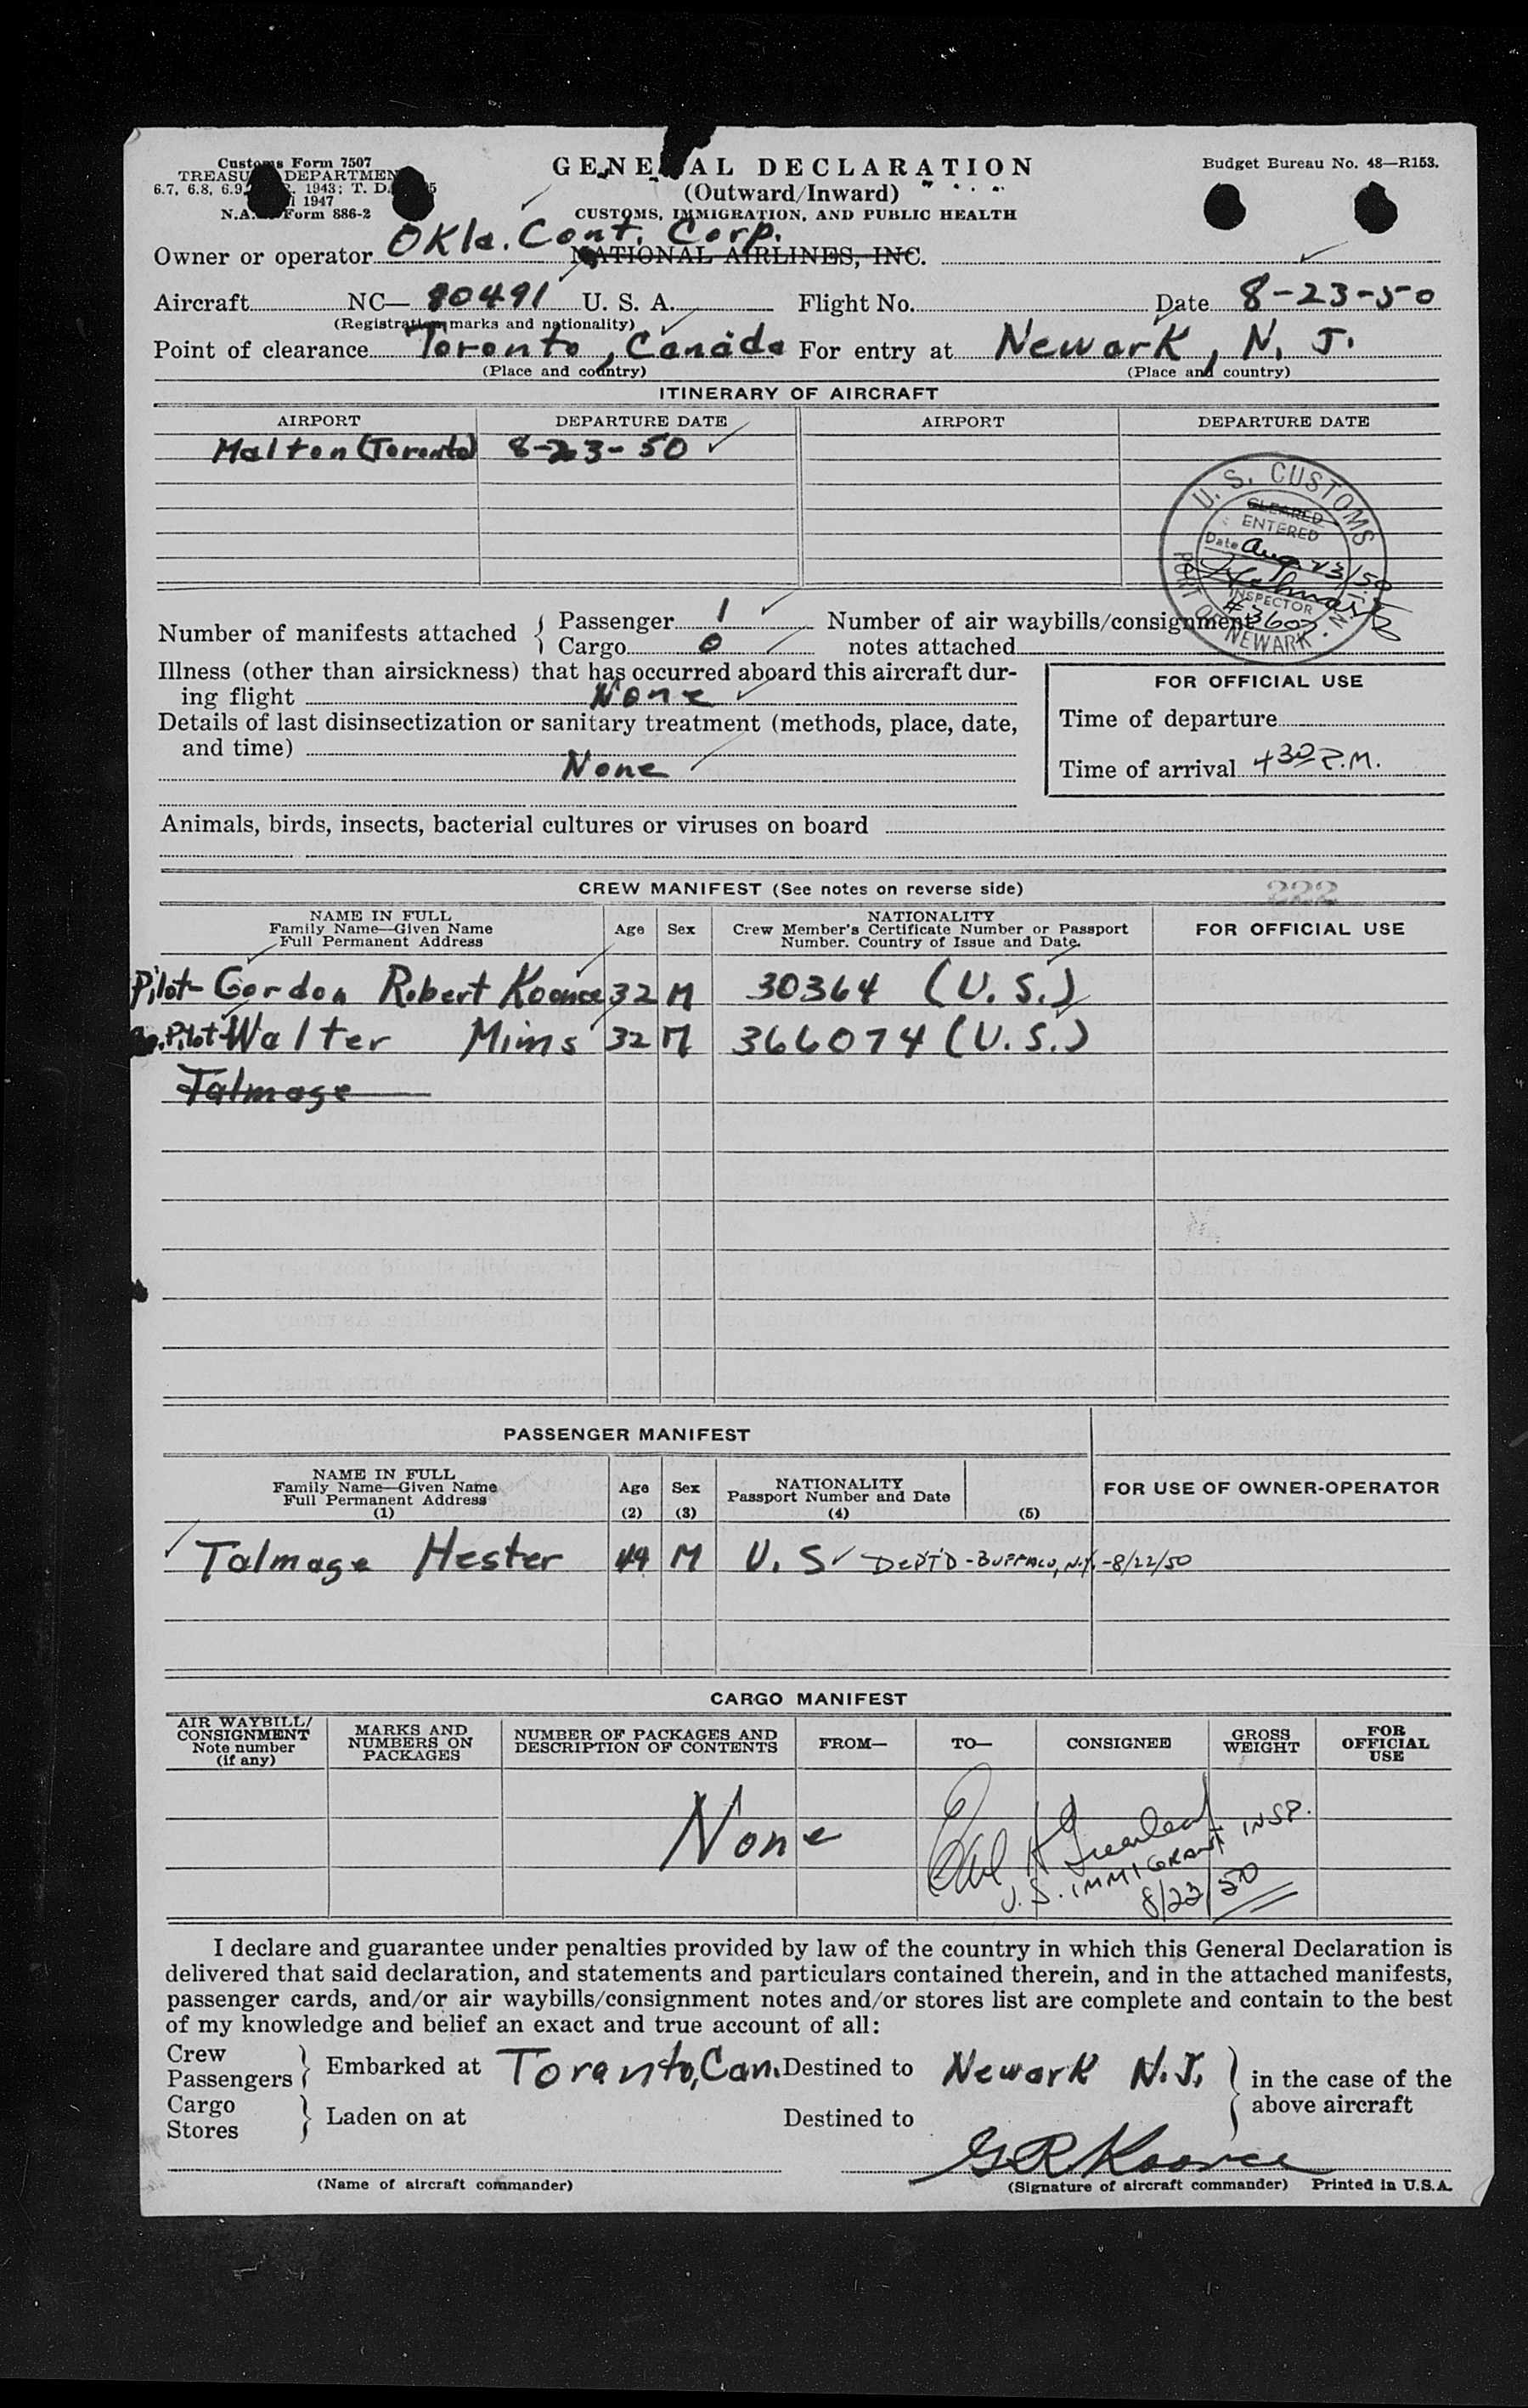 Customs Form 7507
TREASU DEPARTMEN
6.7, 6.8, 6.9, 1943; T. D.
1947
N.A. Form 886-2
GENE AL DECLARATION
(Outward/Inward)
CUSTOMS, IMMIGRATION, AND PUBLIC HEALTH
Budget Bureau No. 48—R153.
Owner or operator Okla. Cont. Corp. NATIONAL AIRLINES, INC.
Aircraft NC— 90491 U. S. A. Flight No. Date 8-23-50
(Registration marks and nationality)
Point of clearance Toronto, Canada For entry at Newark, N. J.
(Place and country) (Place and country)
ITINERARY OF AIRCRAFT
AIRPORT DEPARTURE DATE AIRPORT DEPARTURE DATE
Malton (Toronto) 8-23-50
U. S. CUSTOMS
CLEARED
ENTERED
Date Aug 23/50
INSPECTOR
#3607
PORT OF NEWARK. N.
Number of manifests attached { Passenger 1 Number of air waybills/consignment
Cargo 0 notes attached
Illness (other than airsickness) that has occurred aboard this aircraft dur-
ing flight None
Details of last disinsectization or sanitary treatment (methods, place, date,
and time)
None
FOR OFFICIAL USE
Time of departure
Time of arrival 4 30 P.M.
Animals, birds, insects, bacterial cultures or viruses on board
222
CREW MANIFEST (See notes on reverse side)
NAME IN FULL
Family Name—Given Name
Full Permanent Address
Age Sex
NATIONALITY
Crew Member's Certificate Number or Passport
Number. Country of Issue and Date.
FOR OFFICIAL USE
Pilot- Gordon Robert Koonce 32 M 30364 (U.S.)
Co.Pilot Walter Mims 32 M 366074 (U.S.)
Talmage
PASSENGER MANIFEST
NAME IN FULL
Family Name—Given Name
Full Permanent Address
(1)
Age
(2)
Sex
(3)
NATIONALITY
Passport Number and Date
(4)
(5)
FOR USE OF OWNER-OPERATOR
Talmage Hester 49 M U. S DEPT'D - BUFFALO, N.Y. - 8/22/50
CARGO MANIFEST
AIR WAYBILL/
CONSIGNMENT
Note number
(if any)
MARKS AND
NUMBERS ON
PACKAGES
NUMBER OF PACKAGES AND
DESCRIPTION OF CONTENTS
FROM—
TO—
CONSIGNEE
GROSS
WEIGHT
FOR
OFFICIAL
USE
None
Earl H Greenleaf
U.S. IMMIGRANT INSP.
8/23/50
I declare and guarantee under penalties provided by law of the country in which this General Declaration is
delivered that said declaration, and statements and particulars contained therein, and in the attached manifests,
passenger cards, and/or air waybills/consignment notes and/or stores list are complete and contain to the best
of my knowledge and belief an exact and true account of all:
Crew
Passengers } Embarked at Toronto, Can. Destined to Newark N.J. } in the case of the
above aircraft
Cargo
Stores } Laden on at Destined to
G R Koonce
(Name of aircraft commander) (Signature of aircraft commander) Printed in U.S.A.